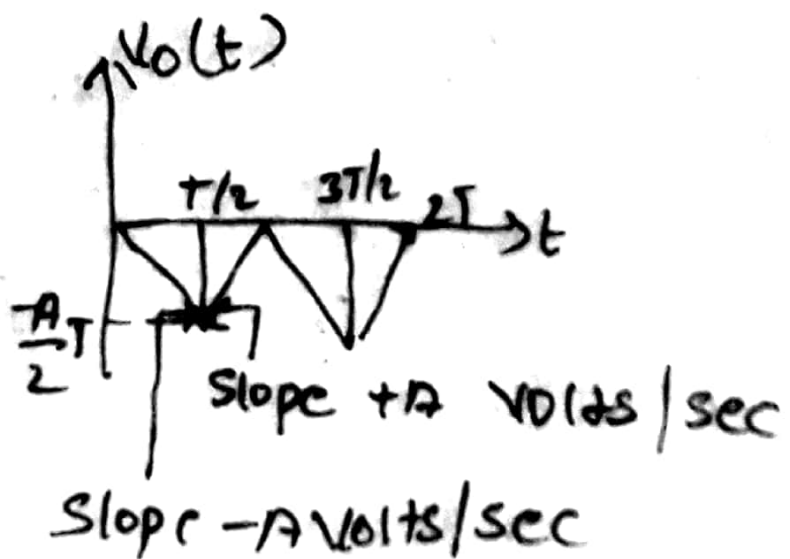 V0(t)
T/2 3T/2 2T
t
-A/2 T
Slope +A Volts/sec
Slope -A Volts/sec